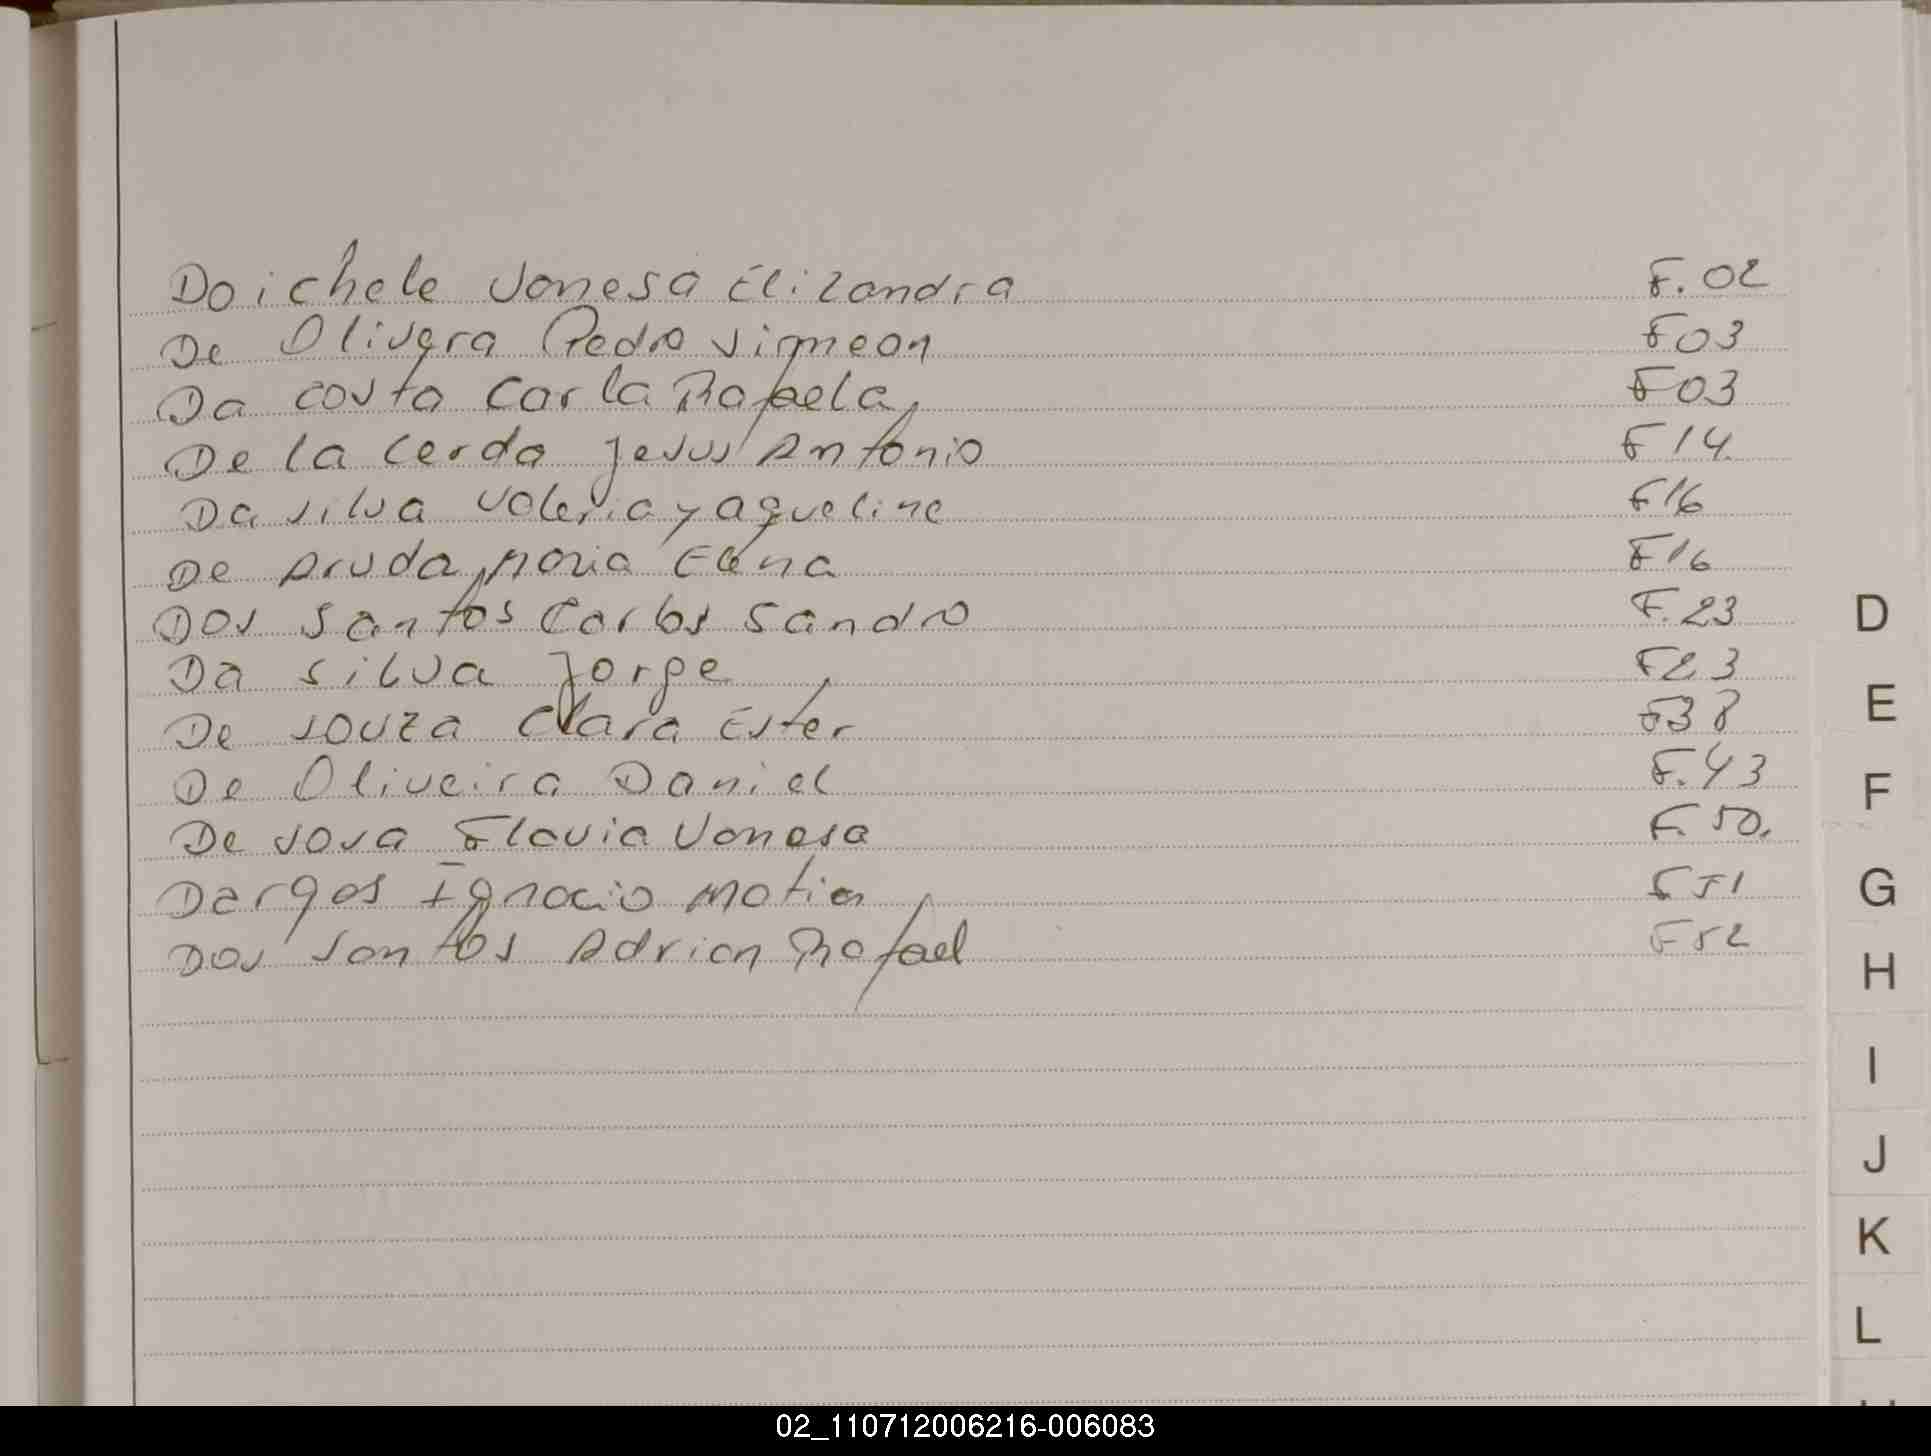 Doichele Vanesa Elizandra F.02
De Olivera Pedro Simeon F03
Da Costa Carla Rafaela F03
De la Cerda Jesus Antonio F14
Da Silva Valeria yaqueline F16
De Aruda Maria Elena F16
Dos Santos Carlos Sandro F.23
Da Silva Jorge F23
De Souza Clara Ester F38
De Oliveira Daniel F.43
De Sosa Flavia Vanesa F.50.
Ignacio Matias F51
Dos Santos Adrian Rafael F52
D
E
F
G
H
I
J
K
L
02_110712006216-006083